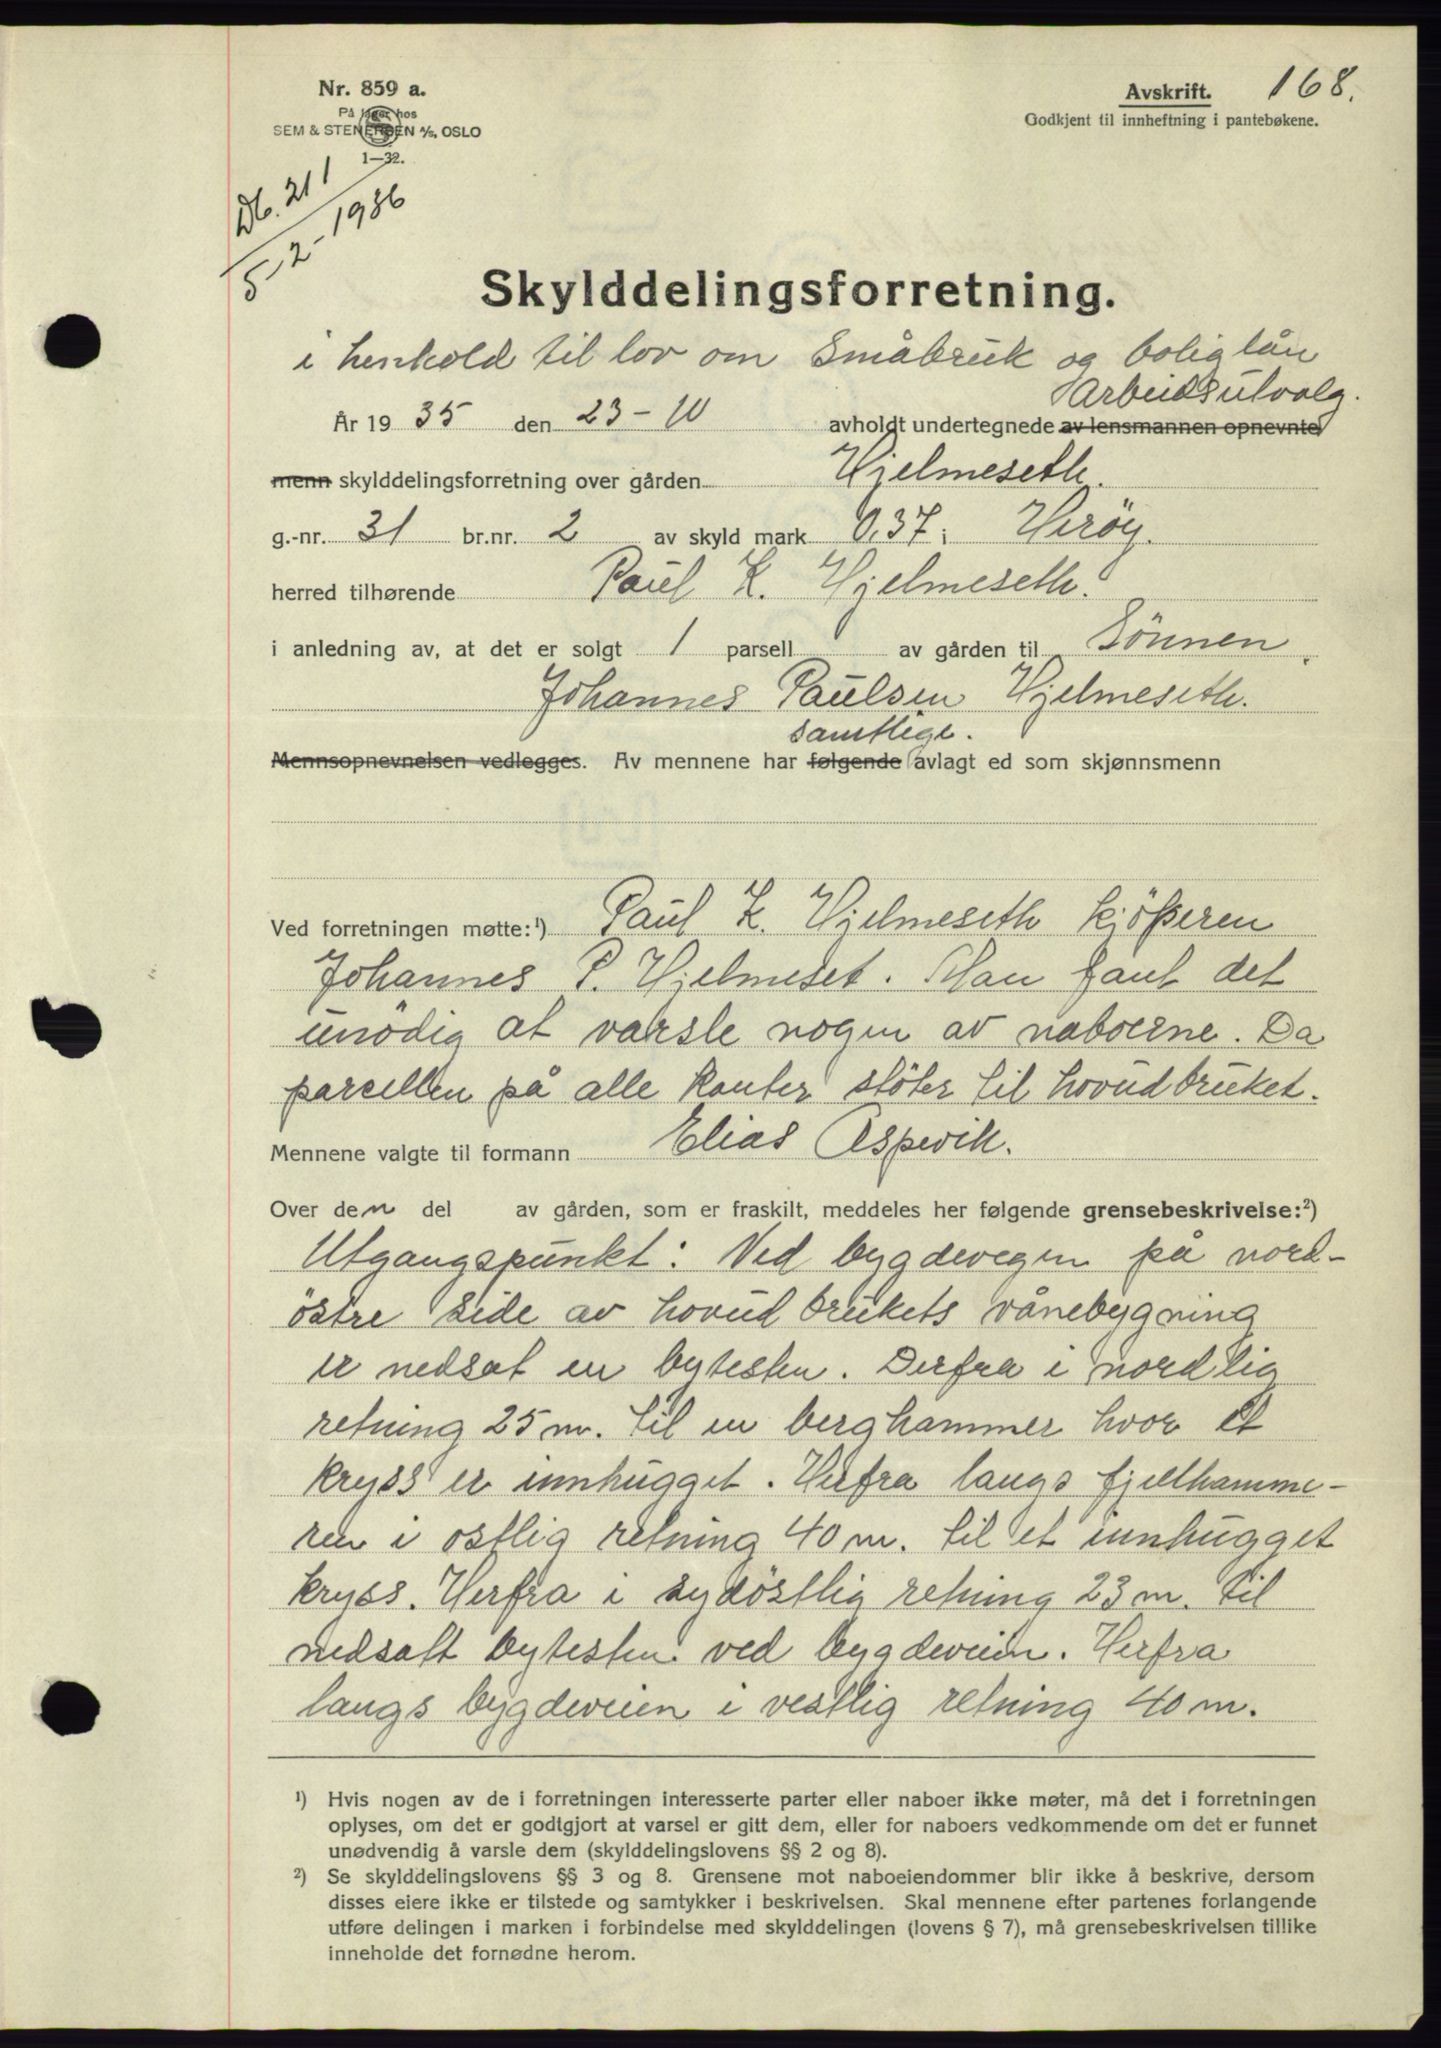 Nr. 859 a.
På lager hos
SEM & STENERSEN A/S, OSLO
1—32.
Avskrift. 168.
Godkjent til innheftning i pantebøkene.
Db. 211
5-2-1936
Skylddelingsforretning.
i henhold til lov om Småbruk og boliglån
Arbeidsutvalg.
År 1935 den 23-10 avholdt undertegnede av lensmannen opnevnte
menn skylddelingsforretning over gården Hjelmeseth.
g.-nr. 31 br.nr. 2 av skyld mark 0,37 i Herøy.
herred tilhørende Paul K. Hjelmeseth.
i anledning av, at det er solgt 1 parsell av gården til Sönnen,
Johannes Paulsen Hjelmeseth.
samtlige.
Mennsopnevnelsen vedlegges. Av mennene har følgende avlagt ed som skjønnsmenn
Ved forretningen møtte:¹) Paul K. Hjelmeseth kjöperen
Johannes P. Hjelmeset. Man fant det
unödig at varsle nogen av naboerne. Da
parcellen på alle kanter stöter til hovudbruket.
Mennene valgte til formann Elias Aspevik.
Over den del av gården, som er fraskilt, meddeles her følgende grensebeskrivelse:²)
Utgangspunkt: Ved bygdevegen på nord-
östre side av hovudbrukets vånebygning
er nedsat en bytesten. Derfra i nordlig
retning 25 m. til en berghammer hvor et
kryss er innhugget. Herfra langs fjellhamme-
ren i ostlig retning 40 m. til et innhugget
kryss. Herfra i sydöstlig retning 23 m. til
nedsatt bytesten ved bygdeveien. Herfra
langs bygdeveien i vestlig retning 40 m.
¹) Hvis nogen av de i forretningen interesserte parter eller naboer ikke møter, må det i forretningen
oplyses, om det er godtgjort at varsel er gitt dem, eller for naboers vedkommende om det er funnet
unødvendig å varsle dem (skylddelingslovens §§ 2 og 8).
²) Se skylddelingslovens §§ 3 og 8. Grensene mot naboeiendommer blir ikke å beskrive, dersom
disses eiere ikke er tilstede og samtykker i beskrivelsen. Skal mennene efter partenes forlangende
utføre delingen i marken i forbindelse med skylddelingen (lovens § 7), må grensebeskrivelsen tillike
inneholde det fornødne herom.